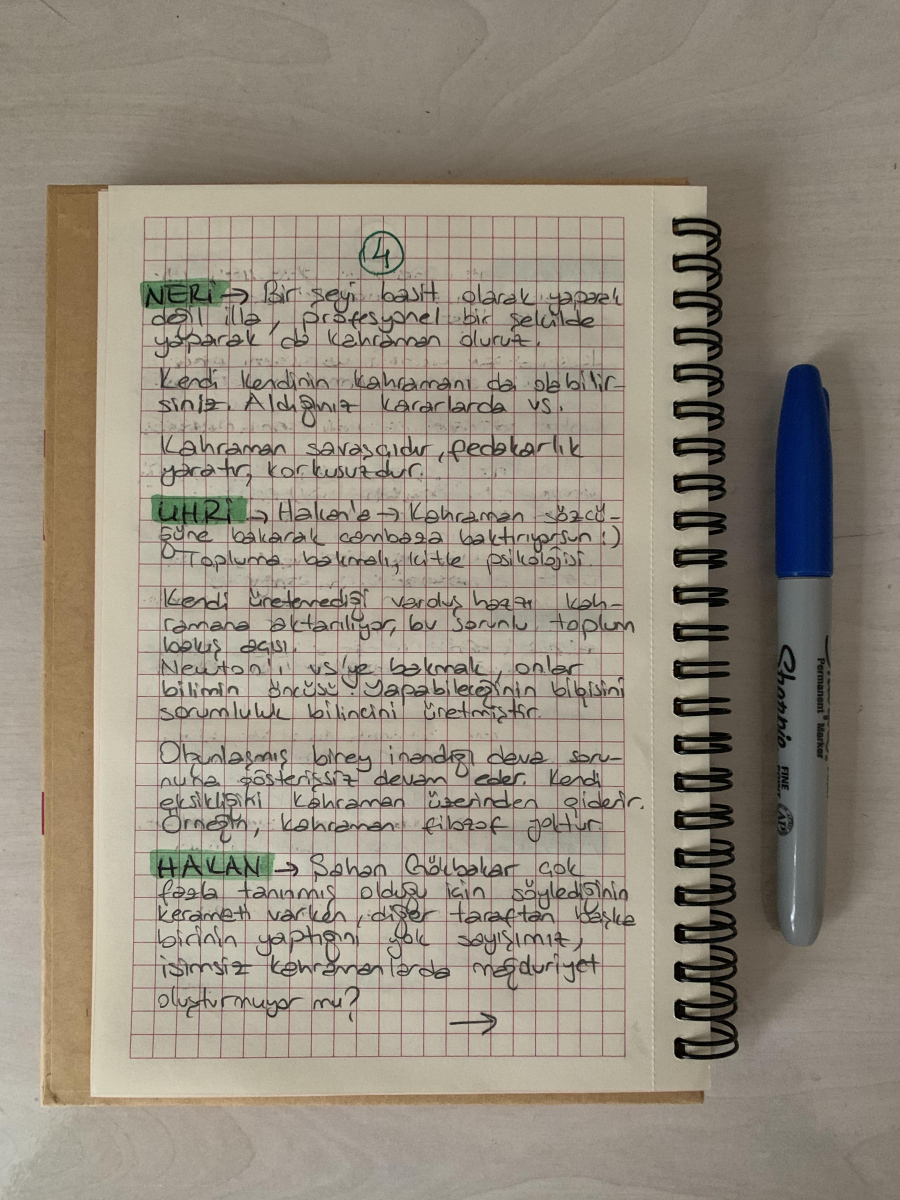 4
NERİ → Bir şeyi basit olarak yaparak
değil illa, profesyonel bir şekilde
yaparak da kahraman oluruz.
Kendi kendinin kahramanı da olabilir-
siniz. Aldığınız kararlarda vs.
Kahraman savaşçıdır, fedakarlık
yaratır, korkusuzdur.
UHRİ → Hakan'a → Kahraman sözcü-
ğüne bakarak cambaza baktırıyorsun :)
Topluma bakmalı, kitle psikolojisi.
Kendi üretemediği varoluş hazzı kah-
ramana aktarılıyor, bu sorunlu toplum
bakış açısı.
Newton'ı vs'ye bakmak, onlar
bilimin öncüsü. Yapabileceğinin bilgisini
sorumluluk bilincini üretmiştir.
Olgunlaşmış birey inandığı dava soru-
nuna gösterişsiz devam eder. Kendi
eksikliğini kahraman üzerinden giderir.
Örneğin, kahraman filozof yoktur.
HAKAN → Şahan Gökbakar çok
fazla tanınmış olduğu için söylediğinin
kerameti varken, diğer taraftan başka
birinin yaptığını yok sayışımız,
isimsiz kahramanlarda mağduriyet
oluşturmuyor mu?
→
Sharpie
Permanent Marker
FINE